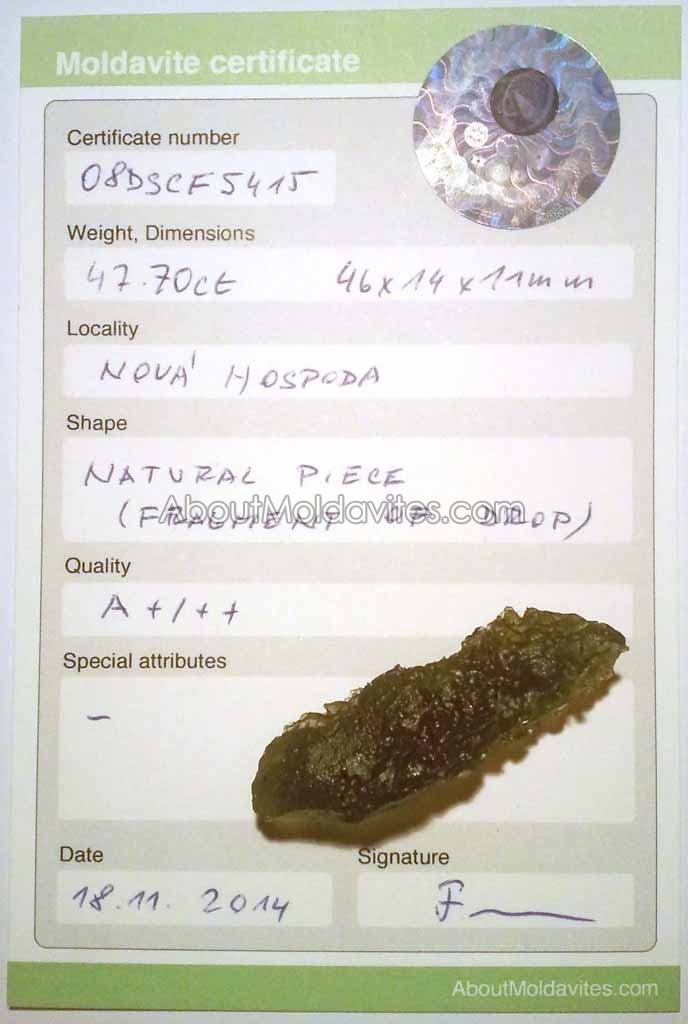 Moldavite certificate
Certificate number
08DSCF5415
Weight, Dimensions
47.70ct 46x14x11mm
Locality
NOVÁ HOSPODA
Shape
NATURAL PIECE
(FRAGMENT OF DROP)
AboutMoldavites.com
Quality
A+/++
Special attributes
–
Date Signature
18.11. 2014
AboutMoldavites.com